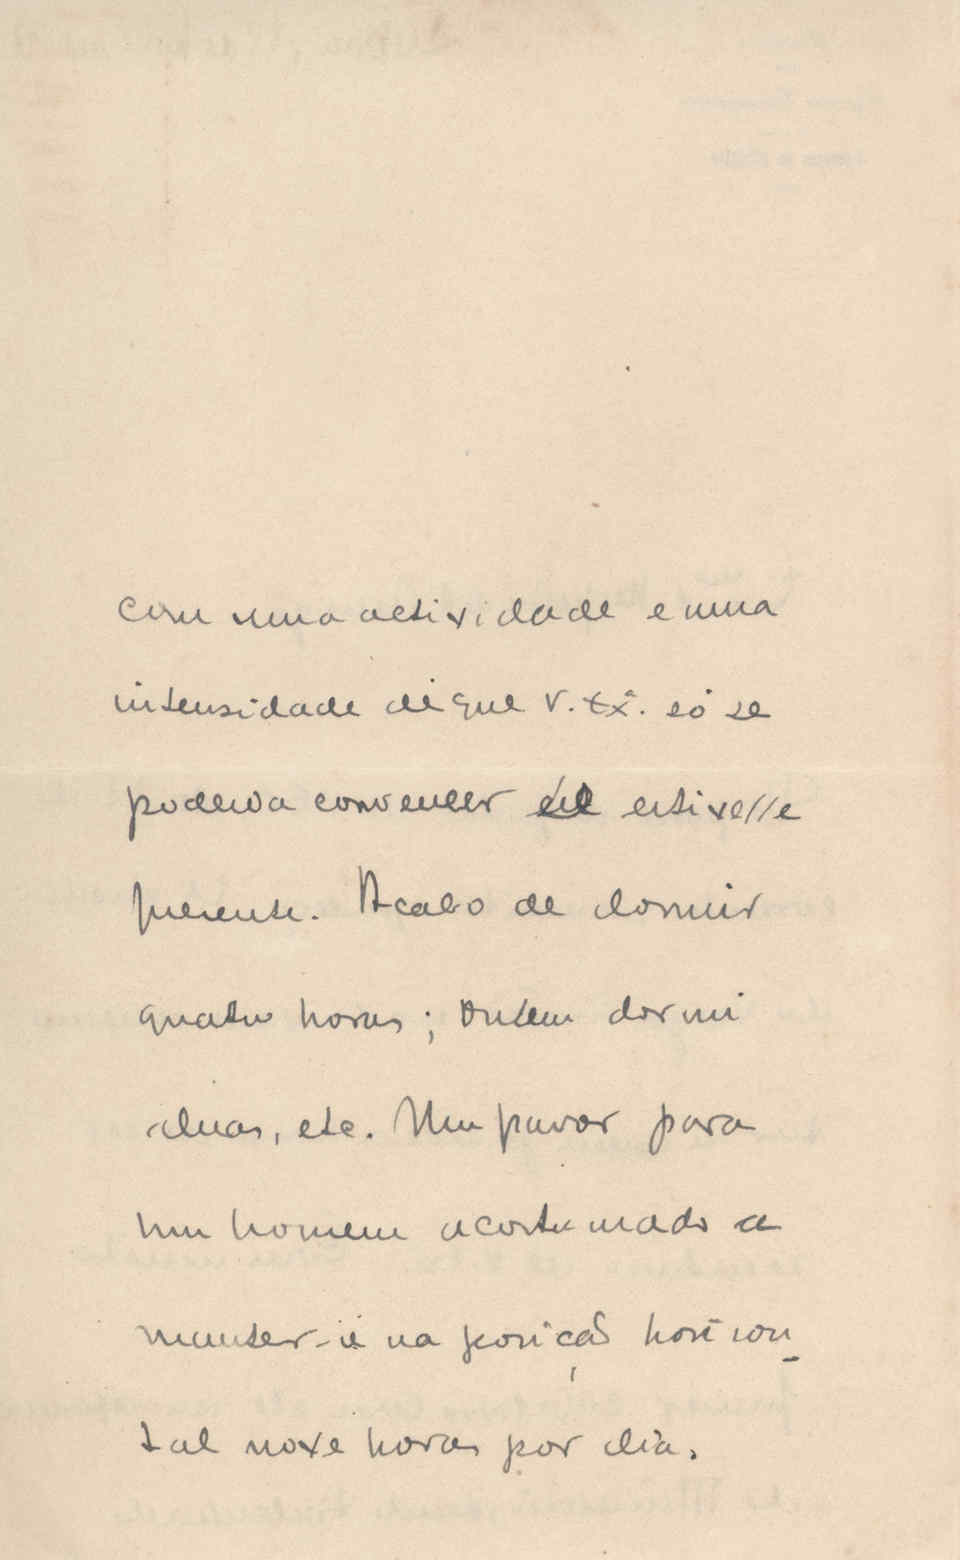 com uma actividade e uma
intensidade de que V. Ex.ª só se
poderia convencer se estivesse
presente. Acabo de dormir
quatro horas; ontem dormi
duas, etc. Um pavor para
um homem acostumado a
manter-se na posição horizon-
tal nove horas por dia.